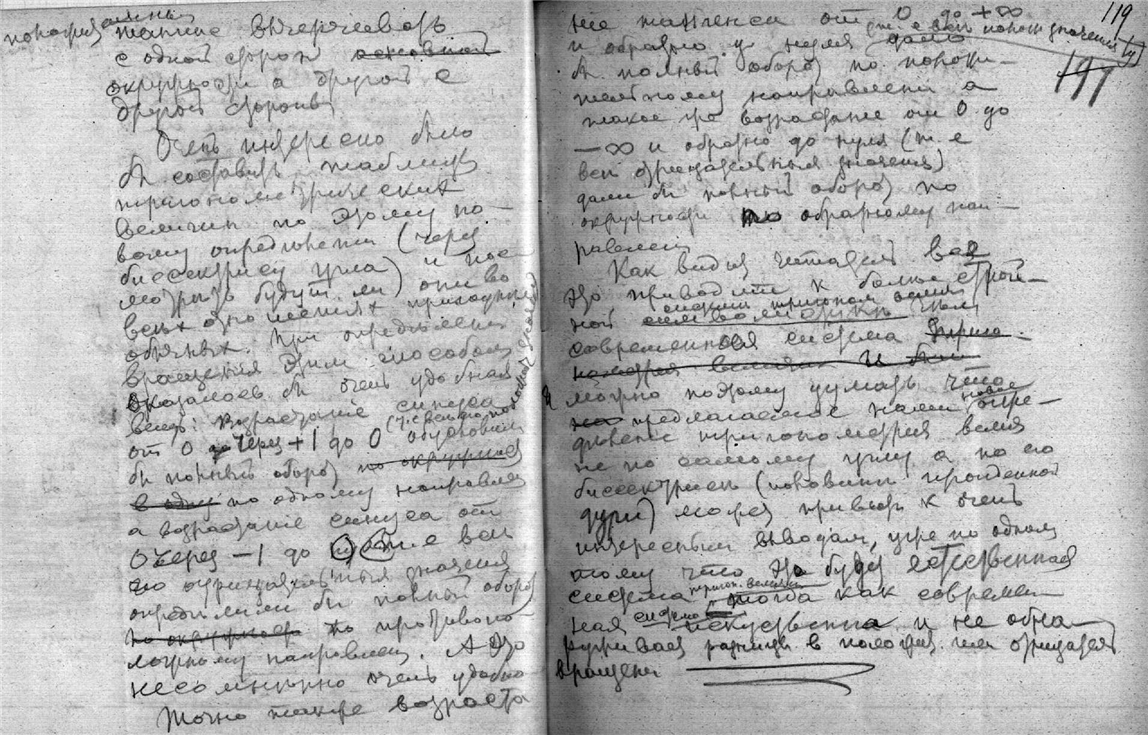 такие вычерчивать
с одной сторон основной
окружности а другой с
другой стороны
Очень интересно было
бы составить таблицу
тригонометрических
величин по этому но-
вому определению (через
биссектрису угла) и пос-
мотреть будут ли они во
всех отношениях
обычных. При определении
вращения этим способом
оказалось бы очень удобная
вещь: Возрастание синуса
от 0 через +1 до 0
бы полный оборот по окружнос
в одну по одному направлен
а возрастание синуса от
0 через –1 до
его отрицательныя значения
определили бы полный оборот
по окружнос по противопо-
ложному направлен. А это
несомненно очень удобно
Точно также возраста
119
ние тангенса от 0 до +∞
и обратно до нуля дало
бы полный оборот по полож-
ительному направлени а
такое же возрастание от 0 до
–∞ и обратно до нуля (т. е
все отрицательныя значения)
дали бы полный оборот по
окружности по обратному нап-
равлен
Как видит читатель все
это приводит к более строй-
ной
современная система
можно поэтому думать что
предлагаемое нами новое опре-
деление тригонометрич велич
не по самому углу а по его
биссектрисе (половины пройденной
дуги) может привести к очень
интересным выводам, уже по одном
тому что это будет естественная
система тригон. величин тогда как современ-
ная система искусственна и не обна-
руживает разницы в положит. или отрицател
вращени